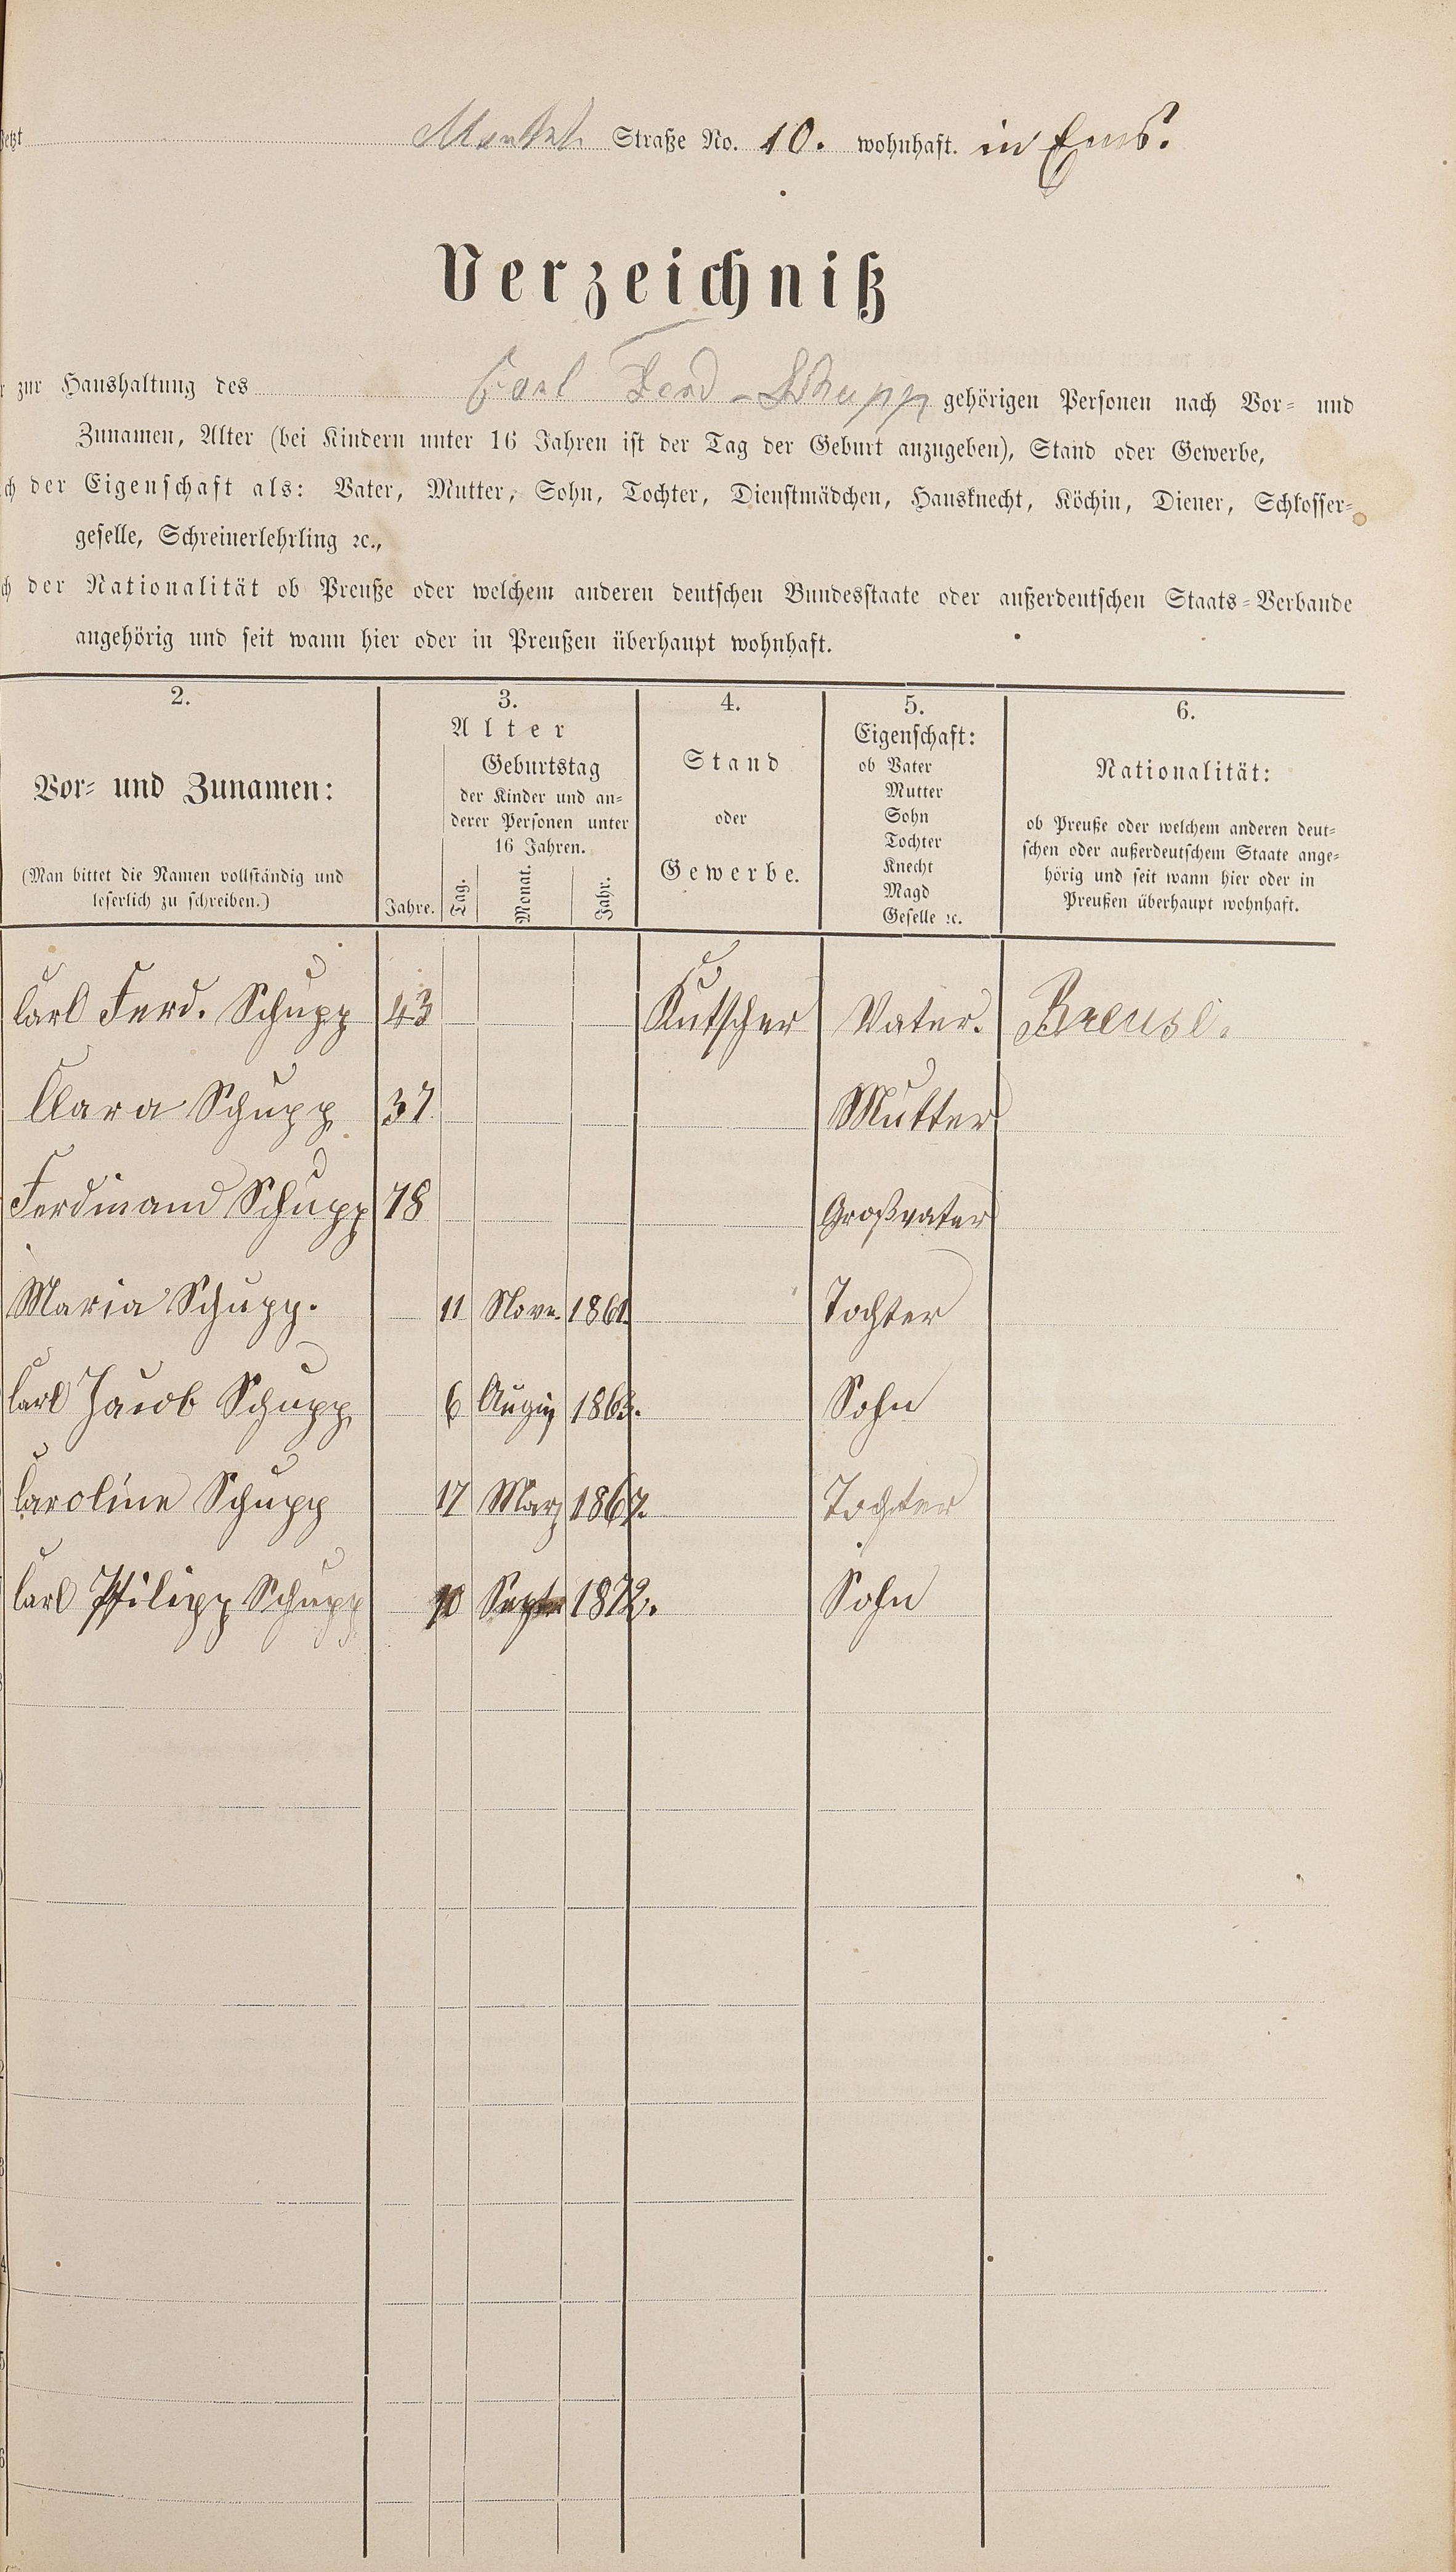 Jetzt Straße No. 10. wohnhaft. in Ems.
Verzeichniß
zur Haushaltung des Carl Ferd. Schupp gehörigen Personen nach Vor- und
Zunamen, Alter (bei Kindern unter 16 Jahren ist der Tag der Geburt anzugeben), Stand oder Gewerbe,
der Eigenschaft als: Vater, Mutter, Sohn, Tochter, Dienstmädchen, Hausknecht, Köchin, Diener, Schlosser-
geselle, Schreinerlehrling ꝛc.,
der Nationalität ob Preuße oder welchem anderen deutschen Bundesstaate oder außerdeutschen Staats-Verbande
angehörig und seit wann hier oder in Preußen überhaupt wohnhaft.
2. 3. 4. 5. 6.
Vor- und Zunamen:
(Man bittet die Namen vollständig und
leserlich zu schreiben.)
Alter
Geburtstag
der Kinder und an-
derer Personen unter
16 Jahren.
Jahre. Tag. Monat. Jahr.
Stand
oder
Gewerbe.
Eigenschaft:
ob Vater
Mutter
Sohn
Tochter
Knecht
Magd
Geselle ꝛc.
Nationalität:
ob Preuße oder welchem anderen deut-
schen oder außerdeutschem Staate ange-
hörig und seit wann hier oder in
Preußen überhaupt wohnhaft.
Carl Ferd. Schupp 43 Kutscher Vater. Preuse.
Clara Schupp 37 Mutter
Ferdinand Schupp 78 Großvater
Maria Schupp. 11 Nove. 1861. Tochter
Carl Jacob Schupp 6 1863. Sohn
Caroline Schupp 17 Marz 1867. Tochter
Carl Philipp Schupp 10 Septr 1872. Sohn